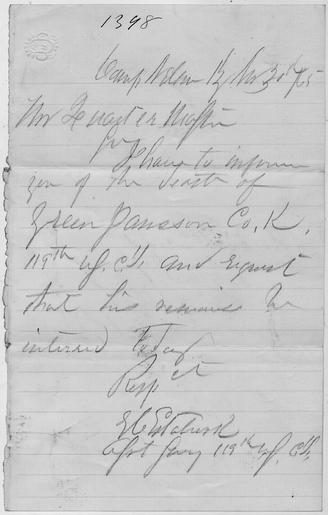 1398
Camp Nelson Ky Nov 30th /65
Mr Quarter Master
Sir
I have to inform
you of the death of
Green Co. K,
119th U.S. C.I. and request
that his remains be
interred today
Resp
Asst Surg 119th U.S. C.I.